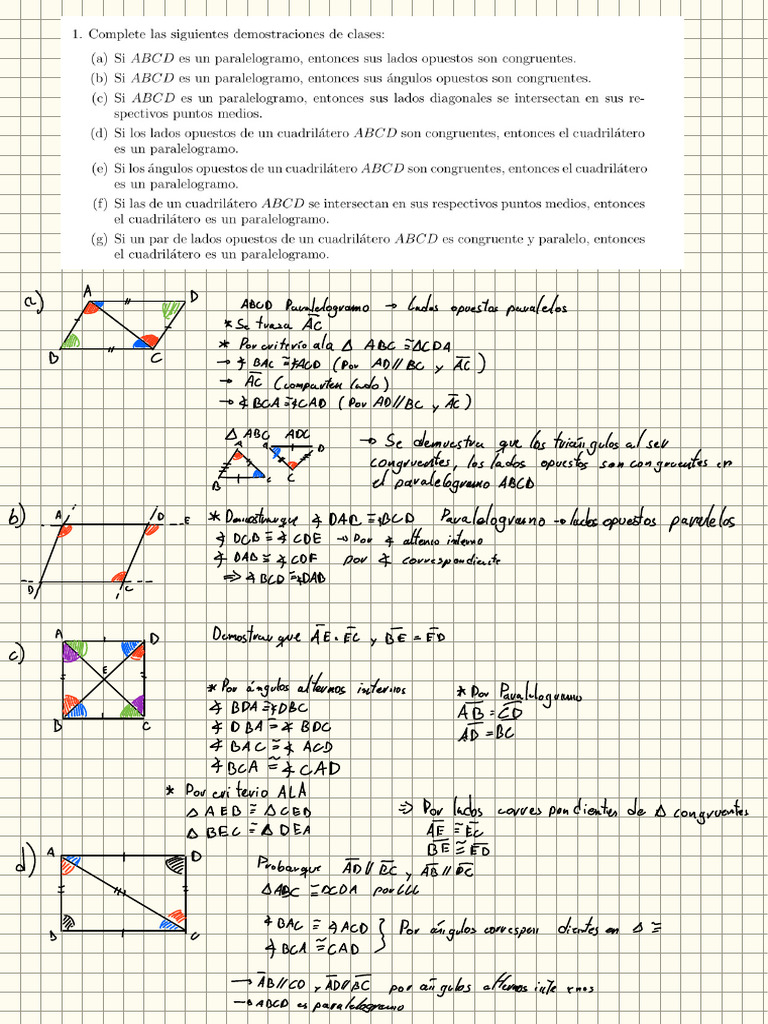 1. Complete las siguientes demostraciones de clases:
(a) Si ABCD es un paralelogramo, entonces sus lados opuestos son congruentes.
(b) Si ABCD es un paralelogramo, entonces sus ángulos opuestos son congruentes.
(c) Si ABCD es un paralelogramo, entonces sus lados diagonales se intersectan en sus re-
spectivos puntos medios.
(d) Si los lados opuestos de un cuadrilátero ABCD son congruentes, entonces el cuadrilátero
es un paralelogramo.
(e) Si los ángulos opuestos de un cuadrilátero ABCD son congruentes, entonces el cuadrilátero
es un paralelogramo.
(f) Si las de un cuadrilátero ABCD se intersectan en sus respectivos puntos medios, entonces
el cuadrilátero es un paralelogramo.
(g) Si un par de lados opuestos de un cuadrilátero ABCD es congruente y paralelo, entonces
el cuadrilátero es un paralelogramo.
a)
A D
B C
ABCD Paralelogramo → lados opuestos paralelos
* Se traza A̅C̅
* Por criterio ala △ ABC ≅ △CDA
→ ∡ BAC ≅ ∡ACD (Por AD//BC y A̅C̅)
→ A̅C̅ (comparten lado)
→ ∡ BCA ≅ ∡CAD (Por AD//BC y A̅C̅)
△ ABC ADC
A A D
B C C
→ Se demuestra que los triángulos al ser
congruentes, los lados opuestos son congruentes en
el paralelogramo ABCD
b)
A D E
B C
* Demostrar que ∡ DAB ≅ ∡BCD Paralelogramo → lados opuestos paralelos
∡ DCB ≅ ∡ CDE → Por ∡ alterno interno
∡ DAB ≅ ∡ CDE por ∡ correspondiente
⇒ ∡ BCD ≅ ∡DAB
c)
A D
E
B C
Demostrar que A̅E̅ = E̅C̅ y B̅E̅ = E̅D̅
* Por ángulos alternos internos
∡ BDA ≅ ∡DBC
∡ DBA ≅ ∡ BDC
∡ BAC ≅ ∡ ACD
∡ BCA ≅ ∡ CAD
* Por Paralelogramo
A̅B̅ = C̅D̅
A̅D̅ = BC
* Por criterio ALA
△ AEB ≅ △ CED
△ BEC ≅ △ DEA
⇒ Por lados correspondientes de △ congruentes
A̅E̅ ≅ E̅C̅
B̅E̅ ≅ E̅D̅
d)
A D
B C
Probar que A̅D̅ // B̅C̅ y A̅B̅ // D̅C̅
△ ABC ≅ △CDA por LLL
∡ BAC ≅ ∡ ACD
∡ BCA ≅ CAD
} Por ángulos correspondientes en △ ≅
→ A̅B̅//CD y A̅D̅//B̅C̅ por ángulos alternos internos
→ ABCD es paralelogramo